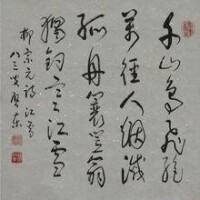 千山鳥飛絕
萬徑人烟滅
孤舟蓑笠翁
獨釣寒江雪
柳宗元詩江雪
八三叟